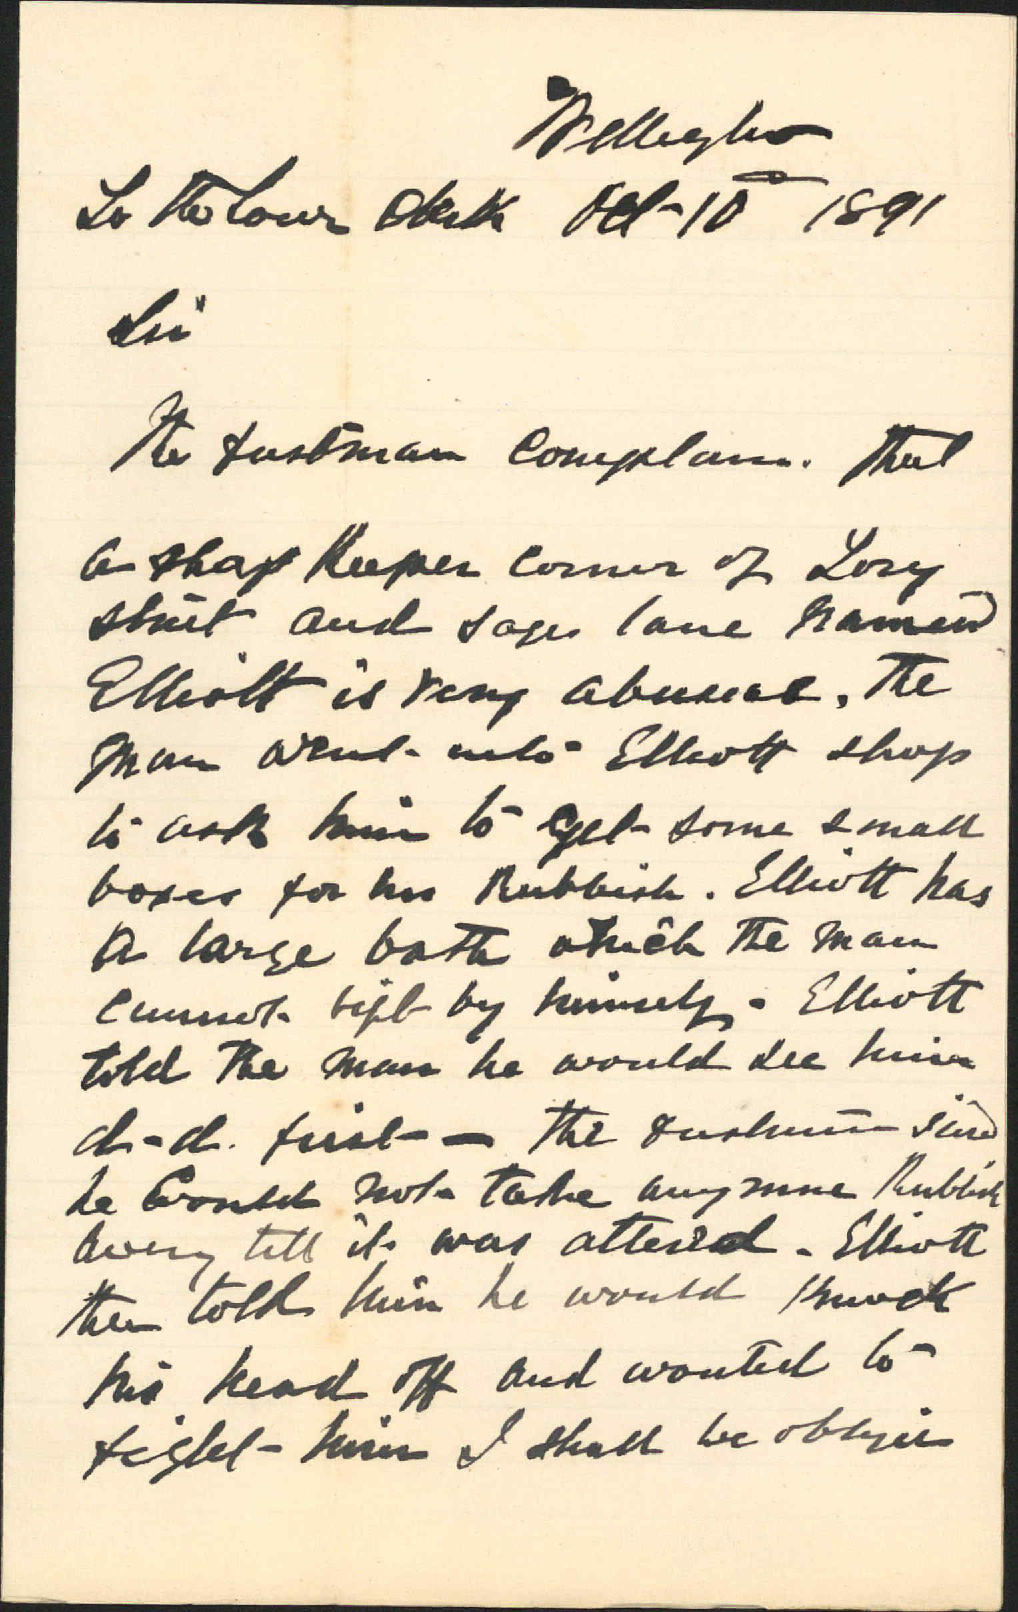 Wellington
To the Town Clerk Oct 10th 1891
Sir
The dustman complains. That
a shop Keeper corner of Tory
street and lane named
Elliott is very abusive. The
man went into Elliott shop
to ask him to get some small
boxes for his Rubbish. Elliott has
a large bath which the man
cannot lift by himself. Elliott
told the man he would see him
d-d. first — the dustman said
he would not take anymore Rubbish
away till it was altered. Elliott
then told him he would knock
his head off and wanted to
fight him I shall be